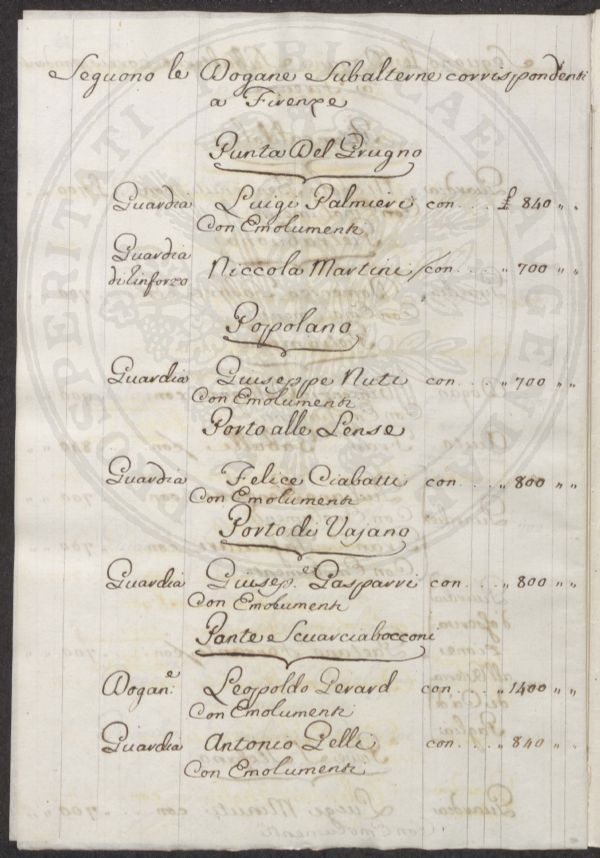 Seguono le Dogane Subalterne corrispondenti
a Firenze
Punta Del Grugno
Guardia Luigi Palmieri con . . . £ 840 " "
Con Emolumenti
Guardia
di rinforzo Niccola Martini / con . . . " 700 " "
Popolano
Guardia Giuseppe Nuti con . . . " 700 " "
Con Emolumenti
Porto alle Lense
Guardia Felice Ciabatti con . . . " 800 " "
Con Emolumenti
Porto di Vajano
Guardia Giusep.e Gasparri con . . . " 800 " "
Con Emolumenti
Ponte e Scuarciabocconi
Dogan.e Leopoldo Gerard con . . . " 1400 " "
Con Emolumenti
Guardia Antonio Pelli con . . . " 840 " "
Con Emolumenti